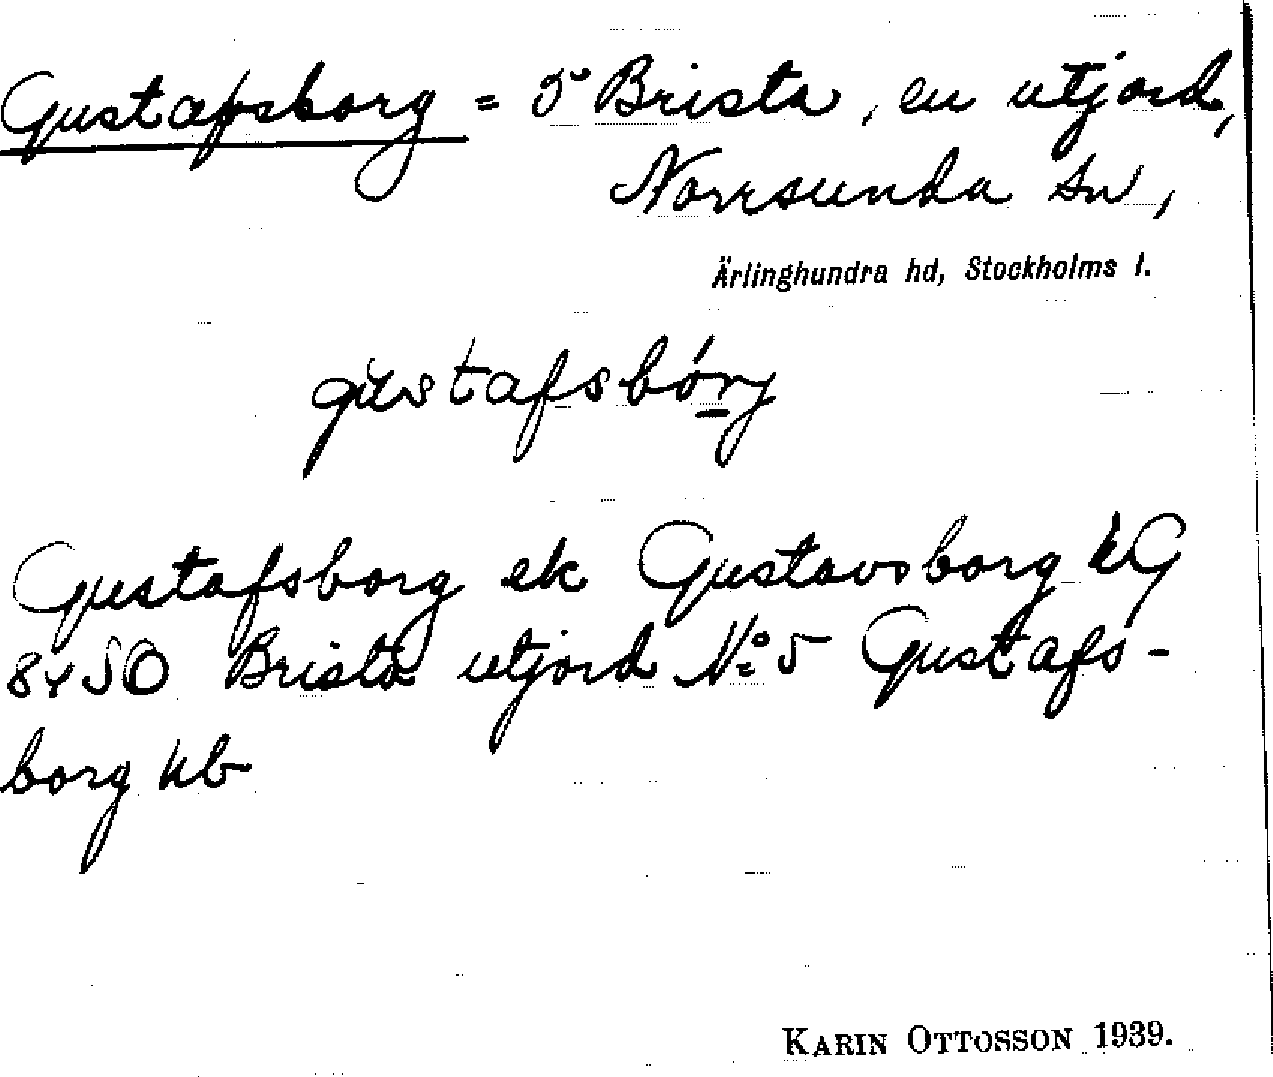 Gustafsborg = 5 Brista, en utjord,
Norrsunda sn,
Ärlinghundra hd, Stockholms l.
gustafsbórj
Gustafsborg ek Gustavsborg kG
8450 Brista utjord N:o 5 Gustafs-
borg kb
KARIN OTTOSSON 1939.